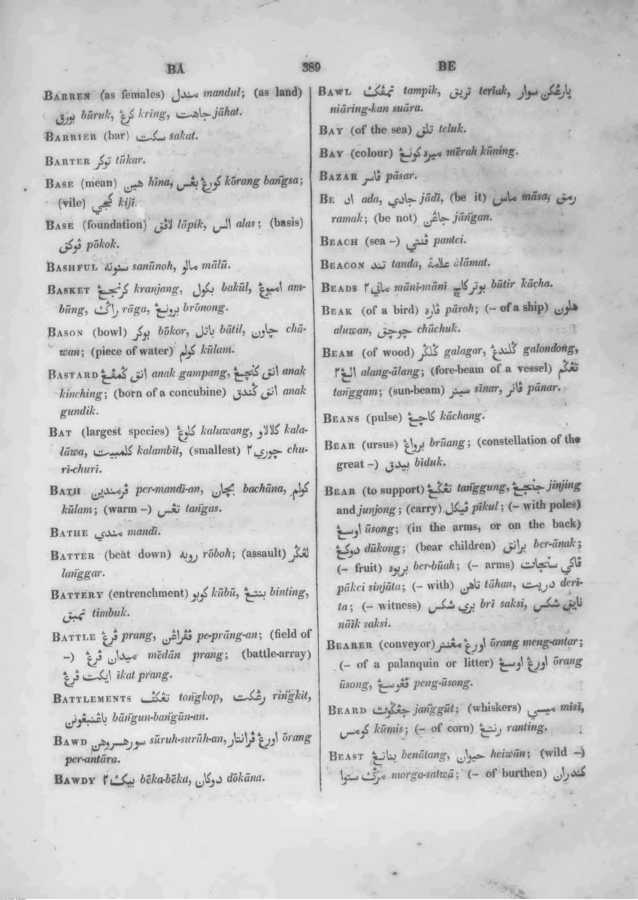 BĀ 389 BE
BARREN (as females) مندل mandul; (as land)
بورق būruk, كرڠ kring, جاهت jāhat.
BARRIER (bar) سكت sakat.
BARTER توكر tūkar.
BASE (mean) هين hīna, كورڠ بڠس kōrang bang̃sa;
(vile) كجي kiji.
BASE (foundation) لاڤق lāpik, الس alas; (basis)
ڤوكق pōkok.
BASHFUL sanūnoh, مالو mālū.
BASKET كرنجڠ kranjang, بكول bakūl, امبوڠ am-
būng, راݢ rāga, برونڠ brōnong.
BASON (bowl) بوكر bōkor, باتل bātil, چاون chā-
wan; (piece of water) كولم kūlam.
BASTARD انق كمڤڠ anak gampang, انق كنچڠ anak
kinching; (born of a concubine) انق كندق anak
gundik.
BAT (largest species) كلوڠ kaluwang, كلالاو kala-
lāwa, كلمبيت kalambīt, (smallest) چوري٢ chu-
ri-churi.
BATH ڤرمندين per-mandī-an, بچان bachāna, كولم
kūlam; (warm –) تڠس tang̃as.
BATHE مندي mandī.
BATTER (beat down) روبه rōboh; (assault) لڠݢر
lang̃gar.
BATTERY (entrenchment) كوبو kūbū, بنتڠ binting,
تمبق timbuk.
BATTLE ڤرڠ prang, ڤڤراڠن pe-prāng-an; (field of
–) ميدان ڤرڠ mēdān prang; (battle-array)
ايكت ڤرڠ īkat prang.
BATTLEMENTS تڠكڤ tong̃kop, رڠكت ring̃kit,
باڠنبڠونن bāng̃un-bang̃ūn-an.
BAWD سورهسروهن sūruh-surūh-an, اورڠ ڤرانتار ōrang
per-antāra.
BAWDY بيك٢ bēka-bēka, دوكان dōkāna.
BAWL تمڤك tampik, تريق teriak, يارڠكن سوار
niāring-kan suāra.
BAY (of the sea) تلق teluk.
BAY (colour) ميره كونڠ mērah kūning.
BAZAR ڤاسر pāsar.
BE اد ada, جادي jādī, (be it) ماس māsa, رمق
ramak; (be not) جاڠن jāng̃an.
BEACH (sea –) ڤنتي pantei.
BEACON تند tanda, علامة âlāmat.
BEADS ماني٢ māni-māni بوتر كاچ būtir kācha.
BEAK (of a bird) ڤاره pāroh; (– of a ship) هلون
aluwan, چوچق chūchuk.
BEAM (of wood) ݢلݢر galagar, ݢلندڠ galondong,
الڠ٢ alang-ālang; (fore-beam of a vessel) تڠݢم
tang̃gam; (sun-beam) سينر sīnar, ڤانر pānar.
BEANS (pulse) كاچڠ kāchang.
BEAR (ursus) برواڠ brūang; (constellation of the
great –) بيدق bīduk.
BEAR (to support) تڠݢڠ tang̃gung, جنجڠ jinjing
and junjong; (carry) ڤيكل pīkul; (– with poles)
اوسڠ ūsong; (in the arms, or on the back)
دوكڠ dūkong; (bear children) برانق ber-ānak;
(– fruit) بربوه ber-būah; (– arms) ڤاكي سنجات
pākei sinjāta; (– with) تاهن tāhan, دريت deri-
ta; (– witness) بري شكس bri saksi, نايق شكس
nāik saksi.
BEARER (conveyor) اورڠ مڠنتر ōrang meng-antar;
(– of a palanquin or litter) اورڠ اوسڠ ōrang
ūsong, ڤڠوسڠ peng-ūsong.
BEARD جڠݢوت jang̃gūt; (whiskers) ميسي misī,
كومس kūmis; (– of corn) رنتڠ ranting.
BEAST بناتڠ benātang, حيوان heiwān; (wild –)
مرݢ ستوا morga-satwā; (– of burthen) كندران